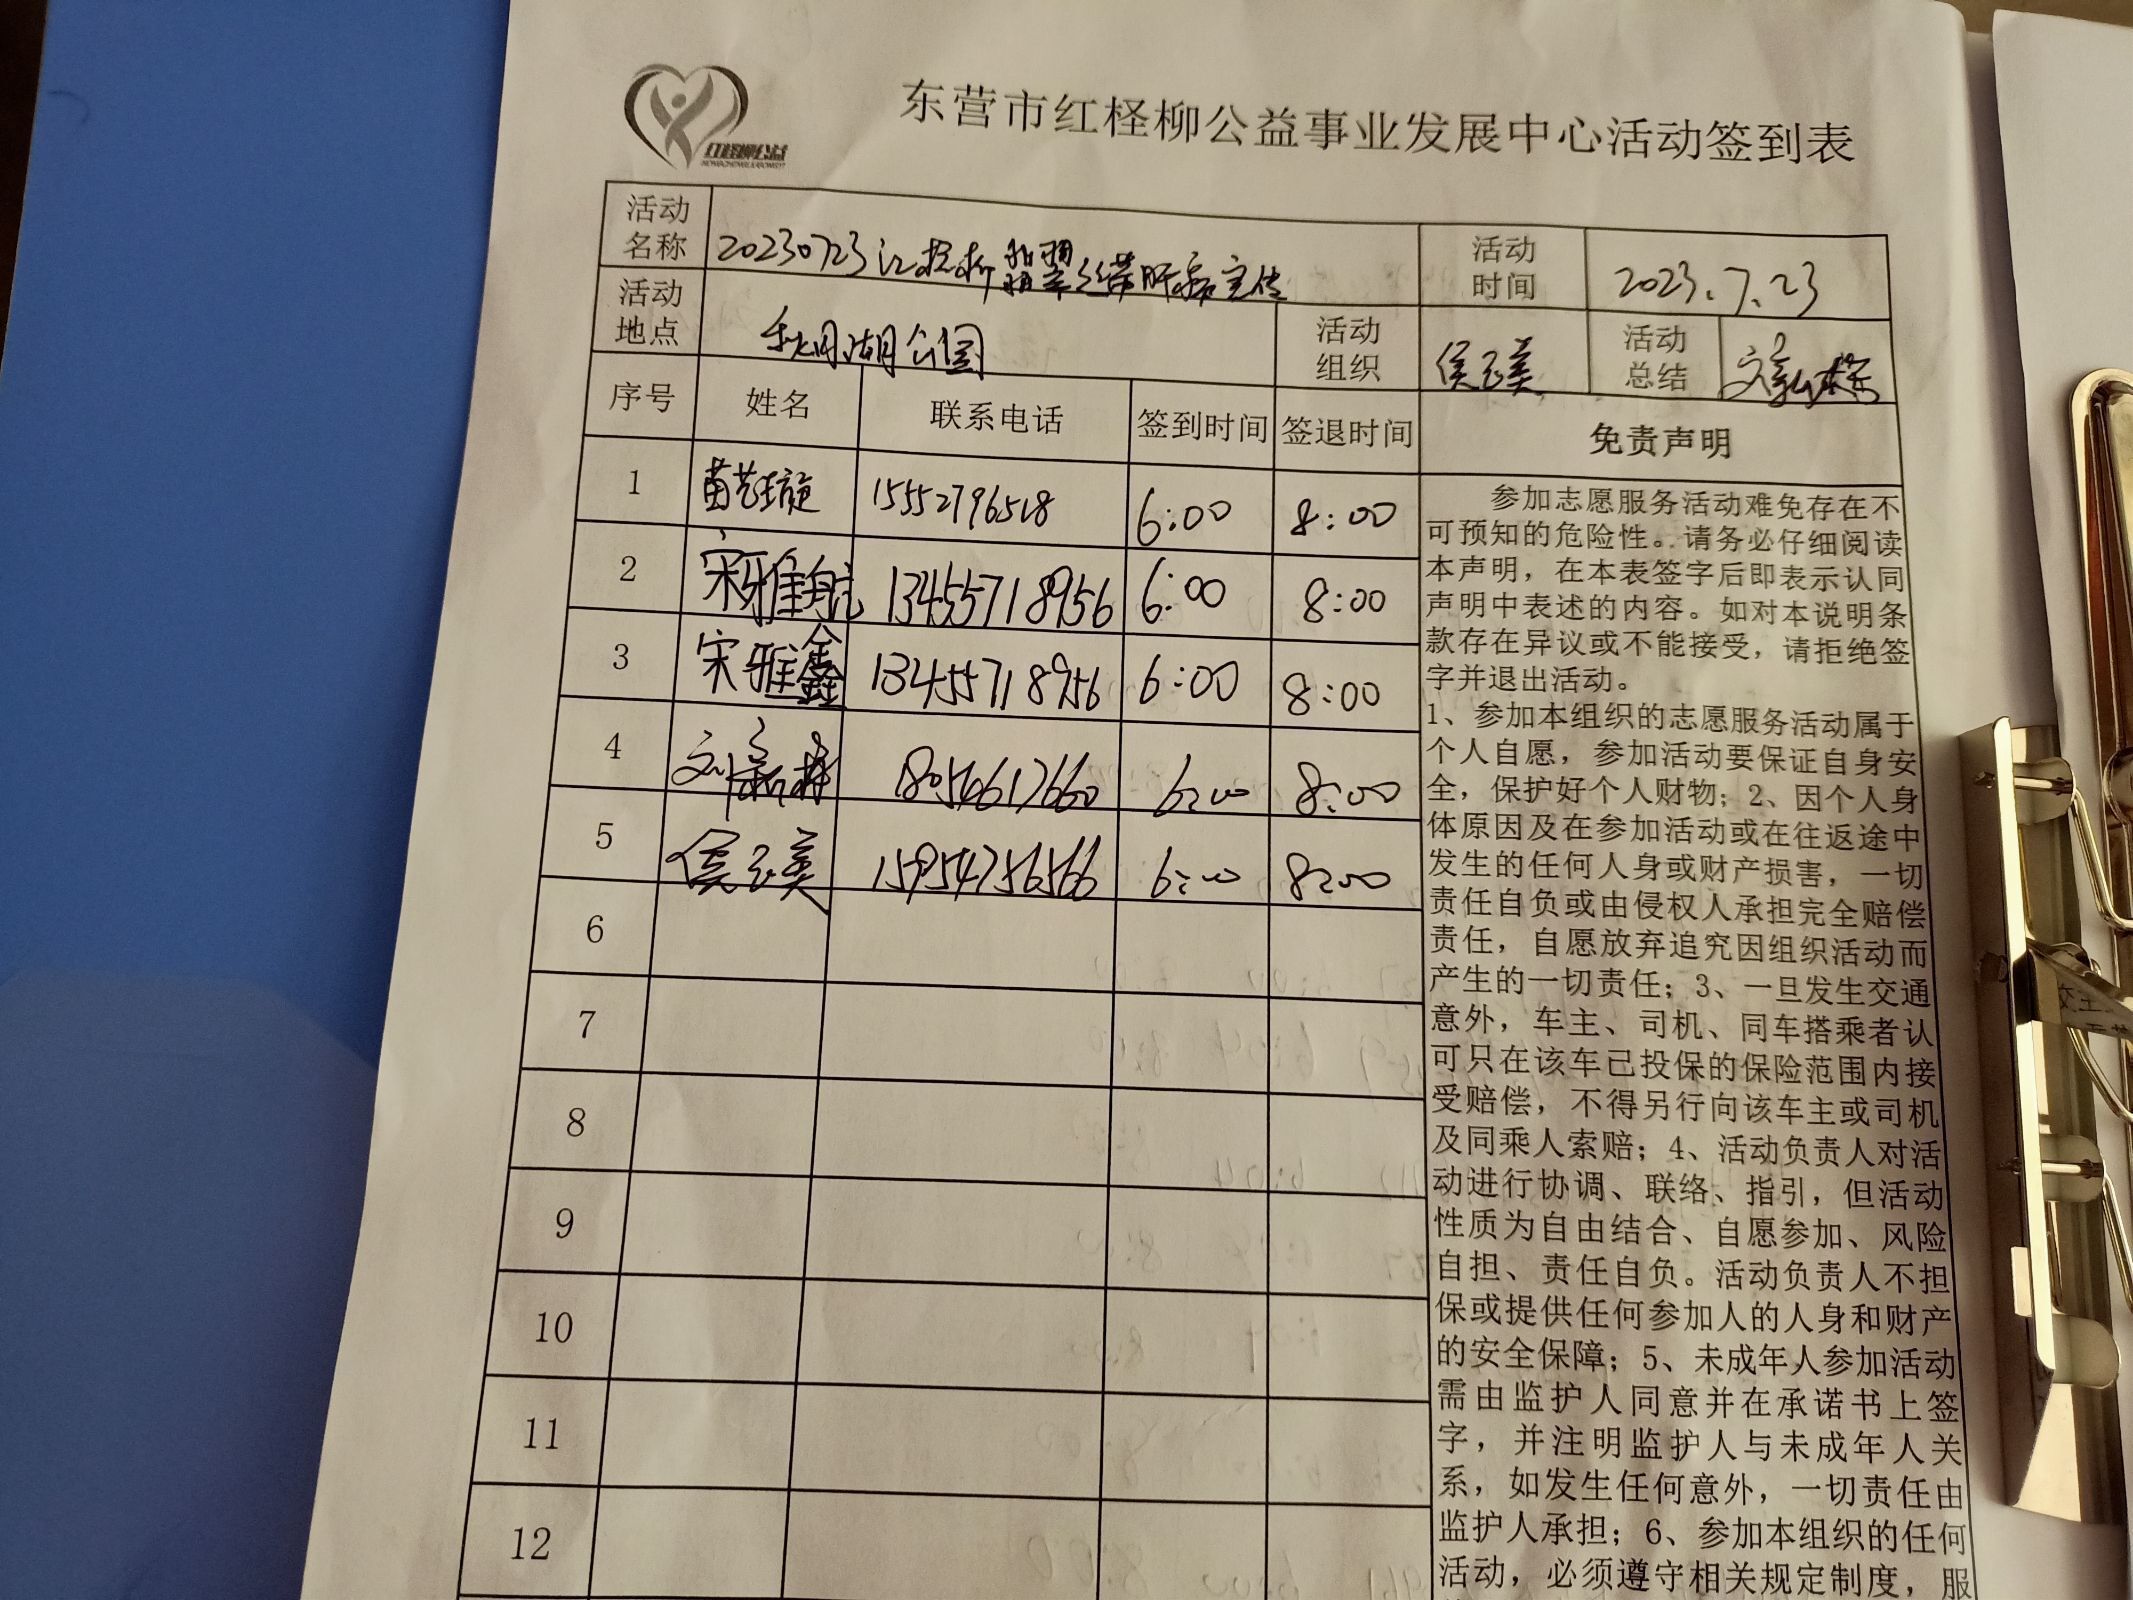 红柽柳公益
东营市红柽柳公益事业发展中心活动签到表
活动名称 20230723红柽柳翡翠丝带肝病宣传 活动时间 2023.7.23
活动地点 秋月湖公园 活动组织 侯玉美 活动总结
序号 姓名 联系电话 签到时间 签退时间 免责声明
1 苗艺璇 15552796518 6:00 8:00
2 宋雅航 13455718956 6:00 8:00
3 宋雅鑫 13455718956 6:00 8:00
4 18054617660 6:00 8:00
5 侯玉美 15954756566 6:00 8:00
6
7
8
9
10
11
12
参加志愿服务活动难免存在不
可预知的危险性。请务必仔细阅读
本声明，在本表签字后即表示认同
声明中表述的内容。如对本说明条
款存在异议或不能接受，请拒绝签
字并退出活动。
1、参加本组织的志愿服务活动属于
个人自愿，参加活动要保证自身安
全，保护好个人财物；2、因个人身
体原因及在参加活动或在往返途中
发生的任何人身或财产损害，一切
责任自负或由侵权人承担完全赔偿
责任，自愿放弃追究因组织活动而
产生的一切责任；3、一旦发生交通
意外，车主、司机、同车搭乘者认
可只在该车已投保的保险范围内接
受赔偿，不得另行向该车主或司机
及同乘人索赔；4、活动负责人对活
动进行协调、联络、指引，但活动
性质为自由结合、自愿参加、风险
自担、责任自负。活动负责人不担
保或提供任何参加人的人身和财产
的安全保障；5、未成年人参加活动
需由监护人同意并在承诺书上签
字，并注明监护人与未成年人关
系，如发生任何意外，一切责任由
监护人承担；6、参加本组织的任何
活动，必须遵守相关规定制度，服